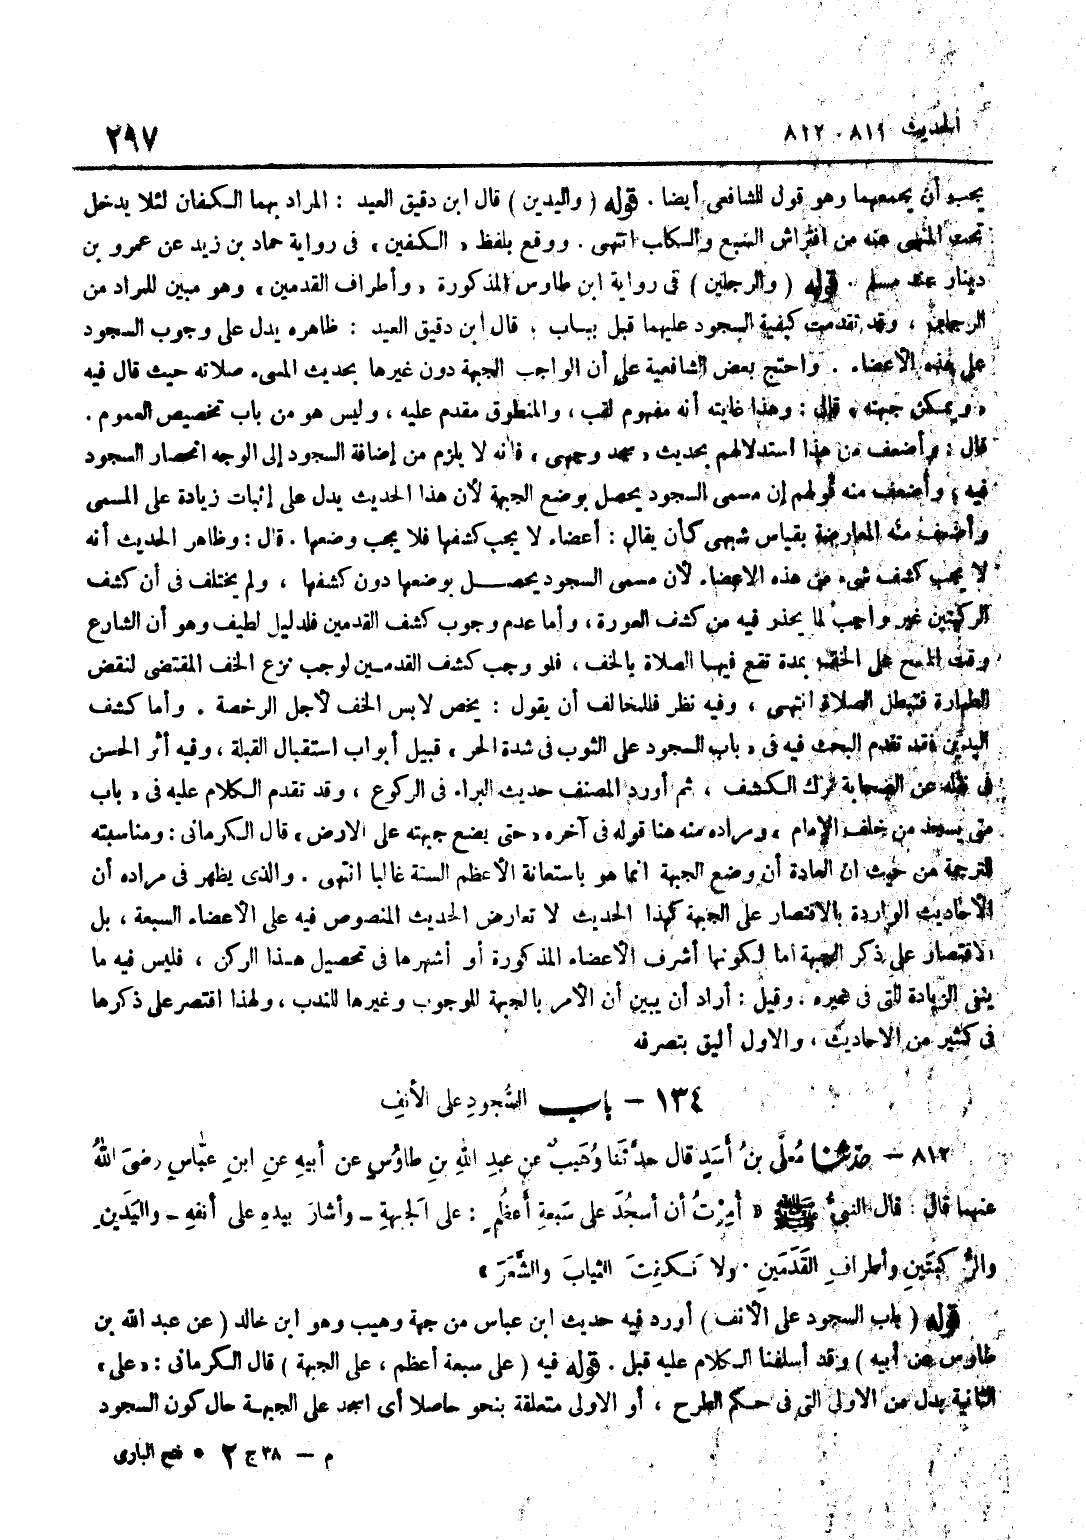 الحديث ٨١٩ - ٨١٢ ٢٩٧
يجب أن يجمعهما وهو قول للشافعى أيضا . قوله ( واليدين ) قال ابن دقيق العيد : المراد بهما الكفان لئلا يدخل
تحت المنهى عنه من افتراش السبع والكلب انتهى . ووقع بلفظ « الكفين » فى رواية حماد بن زيد عن عمرو بن
دينار عند مسلم . قوله ( والرجلين ) فى رواية ابن طاوس المذكورة « وأطراف القدمين » وهو مبين للمراد من
الرجلين ، وقد تقدمت كيفية السجود عليهما قبل بباب ؛ قال ابن دقيق العيد : ظاهره يدل على وجوب السجود
على هذه الأعضاء . واحتج بعض الشافعية على أن الواجب الجبهة دون غيرها بحديث المسىء صلاته حيث قال فيه
« ويمكن جبهته » قال : وهذا غايته أنه مفهوم لقب ، والمنطوق مقدم عليه ، وليس هو من باب تخصيص العموم .
قال : وأضعف من هذا استدلالهم بحديث « سجد وجهى » فانه لا يلزم من إضافة السجود إلى الوجه انحصار السجود
فيه ، وأضعف منه قولهم إن مسمى السجود يحصل بوضع الجبهة لأن هذا الحديث يدل على إثبات زيادة على المسمى
وأضعف منه المعارضة بقياس شبهى كأن يقال : أعضاء لا يجب كشفها فلا يجب وضعها . قال : وظاهر الحديث أنه
لا يجب كشف شىء من هذه الاعضاء لأن مسمى السجود يحصل بوضعها دون كشفها ، ولم يختلف فى أن كشف
الركبتين غير واجب لما يحذر فيه من كشف العورة ، وأما عدم وجوب كشف القدمين فلدليل لطيف وهو أن الشارع
وقت المسح على الخف بمدة تقع فيها الصلاة بالخف ، فلو وجب كشف القدمين لوجب نزع الخف المقتضى لنقض
الطهارة فتبطل الصلاة انتهى ، وفيه نظر فللمخالف أن يقول : يخص لابس الخف لأجل الرخصة . وأما كشف
اليدين فقد تقدم البحث فيه فى « باب السجود على الثوب فى شدة الحر » قبيل أبواب استقبال القبلة ، وفيه أثر الحسن
فى نقله عن الصحابة ترك الكشف ، ثم أورد المصنف حديث البراء فى الركوع ، وقد تقدم الكلام عليه فى « باب
متى يسجد من خلف الإمام » ومراده منه هنا قوله فى آخره « حتى يضع جبهته على الارض » قال الكرمانى : ومناسبته
للترجمة من حيث ان العادة أن وضع الجبهة انما هو باستعانة الأعظم الستة غالبا انتهى . والذى يظهر فى مراده أن
الأحاديث الواردة بالاقتصار على الجبهة كهذا الحديث لا تعارض الحديث المنصوص فيه على الأعضاء السبعة ، بل
الاقتصار على ذكر الجبهة اما لكونها أشرف الأعضاء المذكورة أو أشهرها فى تحصيل هذا الركن ، فليس فيه ما
ينفى الزيادة التى فى غيره . وقيل : أراد أن يبين أن الأمر بالجبهة للوجوب وغيرها للندب ، ولهذا اقتصر على ذكرها
فى كثير من الاحاديث ، والاول أليق بتصرفه
١٣٤ – باب السُّجودِ على الأنفِ
٨١٢ – حدّثنا مُعلَّى بنُ أسَدٍ قال حدَّثَنا وُهَيبٌ عن عبدِ اللهِ بنِ طاوُسٍ عن أبيهِ عنِ ابنِ عبّاسٍ رضىَ اللهُ
عنهما قال : قال النبىُّ ﷺ « أُمِرْتُ أن أسجُدَ على سَبعةِ أعظُمٍ : على الجَبهةِ – وأشارَ بيدهِ على أنفهِ – واليَدَينِ
والرُّكبَتَينِ وأطرافِ القَدَمَينِ . ولا نَكفِتَ الثيابَ والشَّعَرَ »
قوله ( باب السجود على الأنف ) أورد فيه حديث ابن عباس من جهة وهيب وهو ابن خالد ( عن عبد الله بن
طاوس عن أبيه ) وقد أسلفنا الكلام عليه قبل . قوله فيه ( على سبعة أعظم ، على الجبهة ) قال الكرمانى : « على »
الثانية بدل من الاولى التى فى حكم الطرح ، أو الاولى متعلقة بنحو حاصلا أى اسجد على الجبهة حال كون السجود
م – ٣٨ ج ٢ * فتح البارى